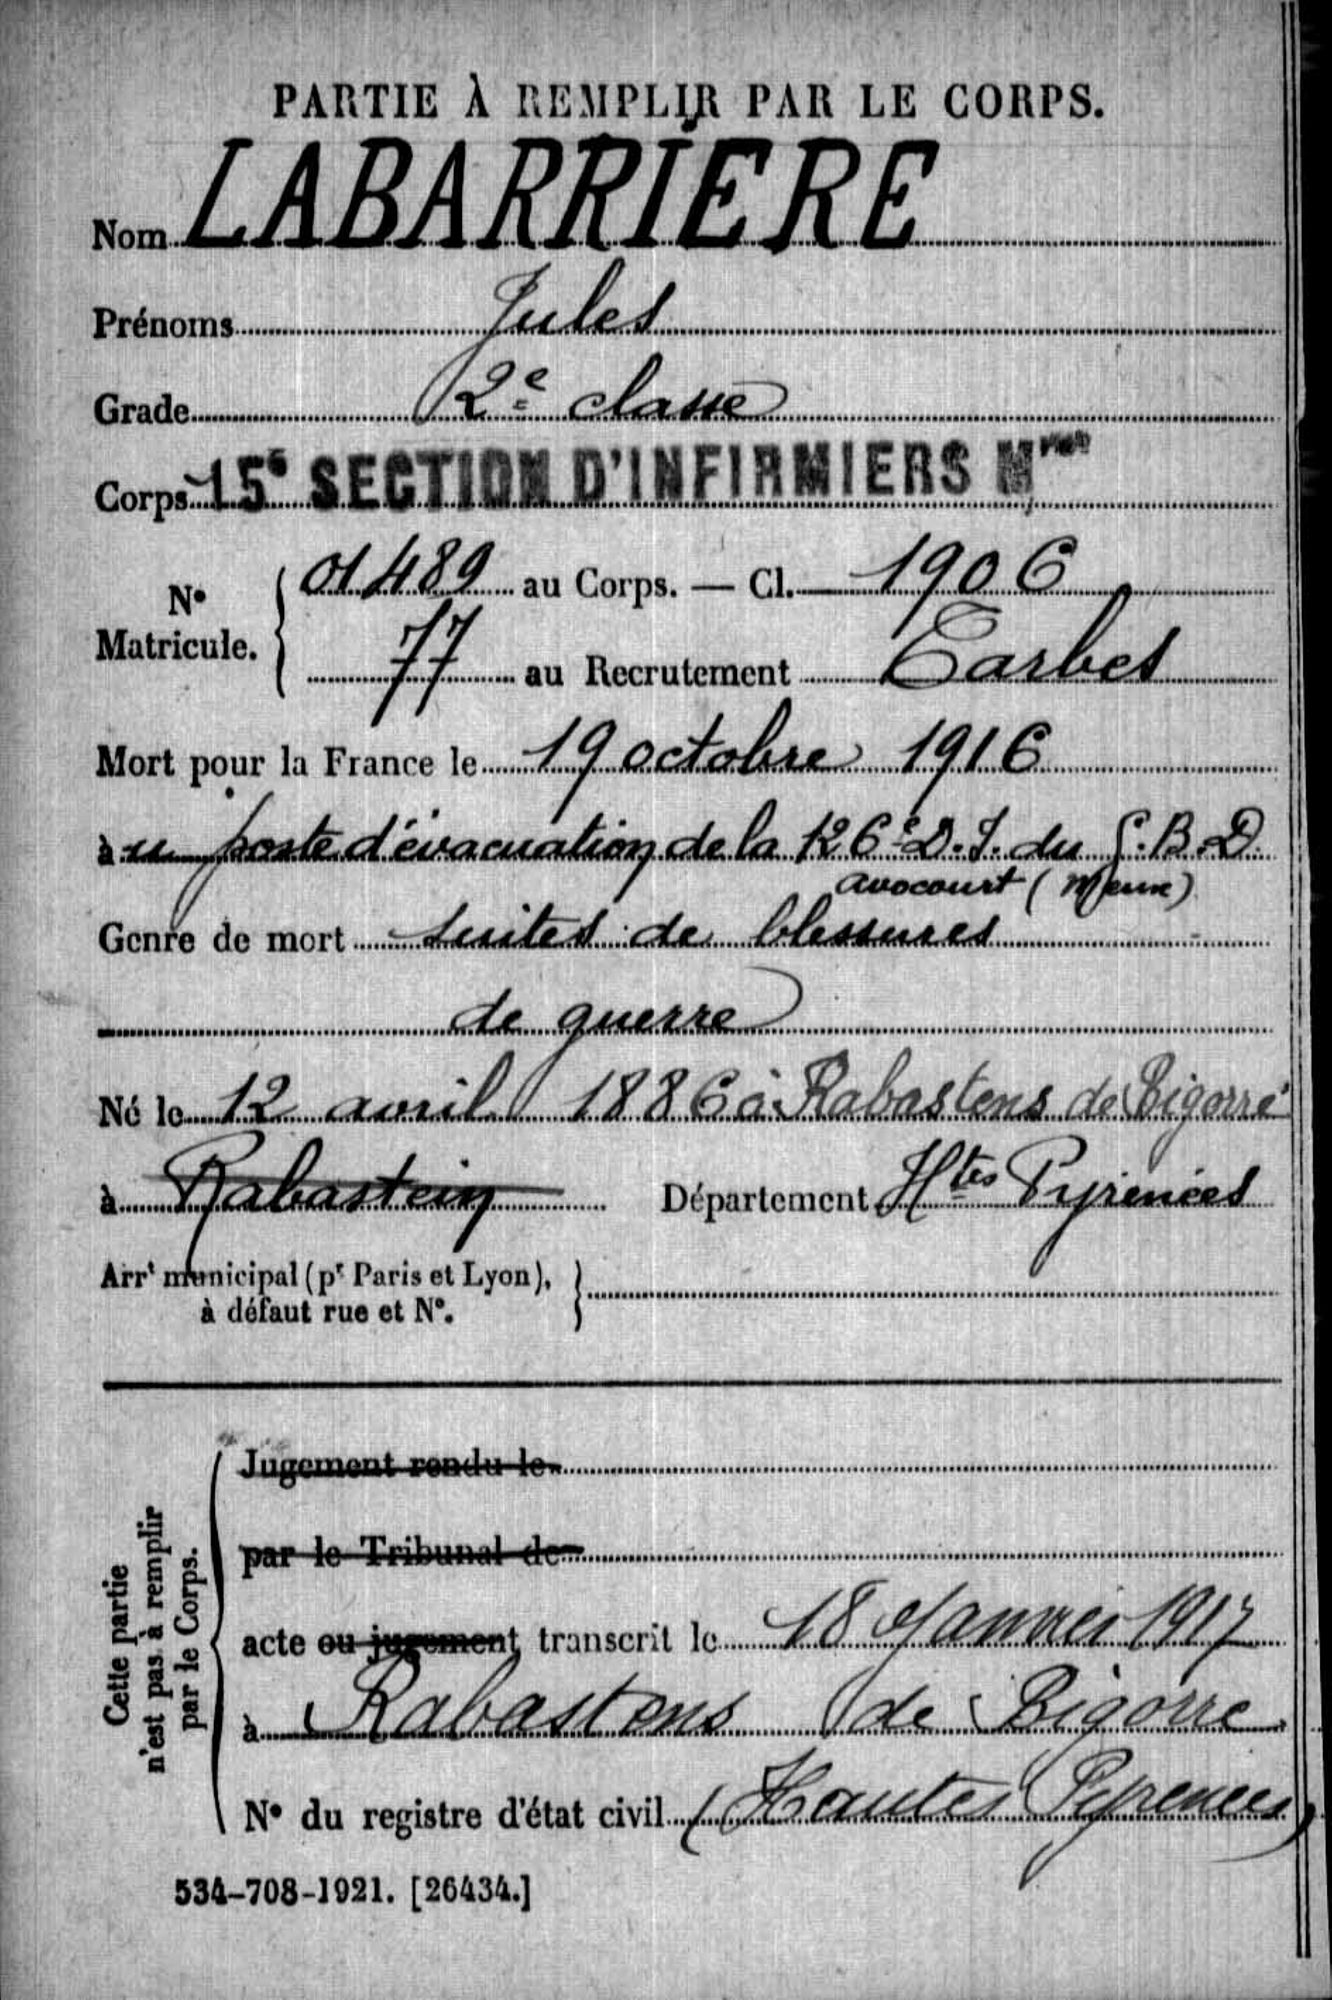 PARTIE À REMPLIR PAR LE CORPS.
Nom LABARRIÈRE
Prénoms Jules
Grade 2e classe
Corps 15e SECTION D'INFIRMIERS Mres
No Matricule. 01489 au Corps. — Cl. 1906
77 au Recrutement Tarbes
Mort pour la France le 19 octobre 1916
à u poste d'évacuation de la 126e D.I. du G.B.D.
Avocourt (Meuse)
Genre de mort suites de blessures
de guerre
Né le 12 avril 1886 à Rabastens de Bigorre
à Rabastein Département Htes Pyrénées
Arrt municipal (pr Paris et Lyon),
à défaut rue et No.
Cette partie
n'est pas à remplir
par le Corps.
Jugement rendu le
par le Tribunal de
acte ou jugement transcrit le 18 Janvier 1917
à Rabastens de Bigorre
No du registre d'état civil (Hautes Pyrénées)
534-708-1921. [26434.]